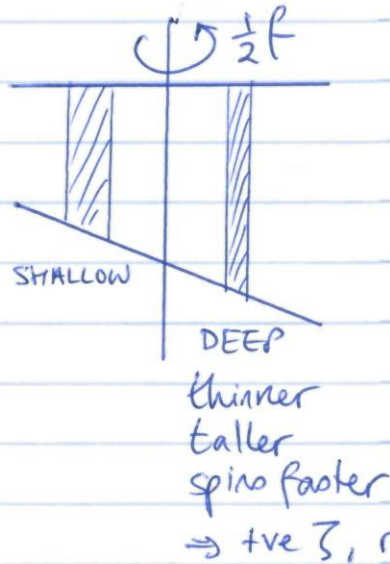 ½ f
SHALLOW
DEEP
thinner
taller
spins faster
⇒ +ve ζ,